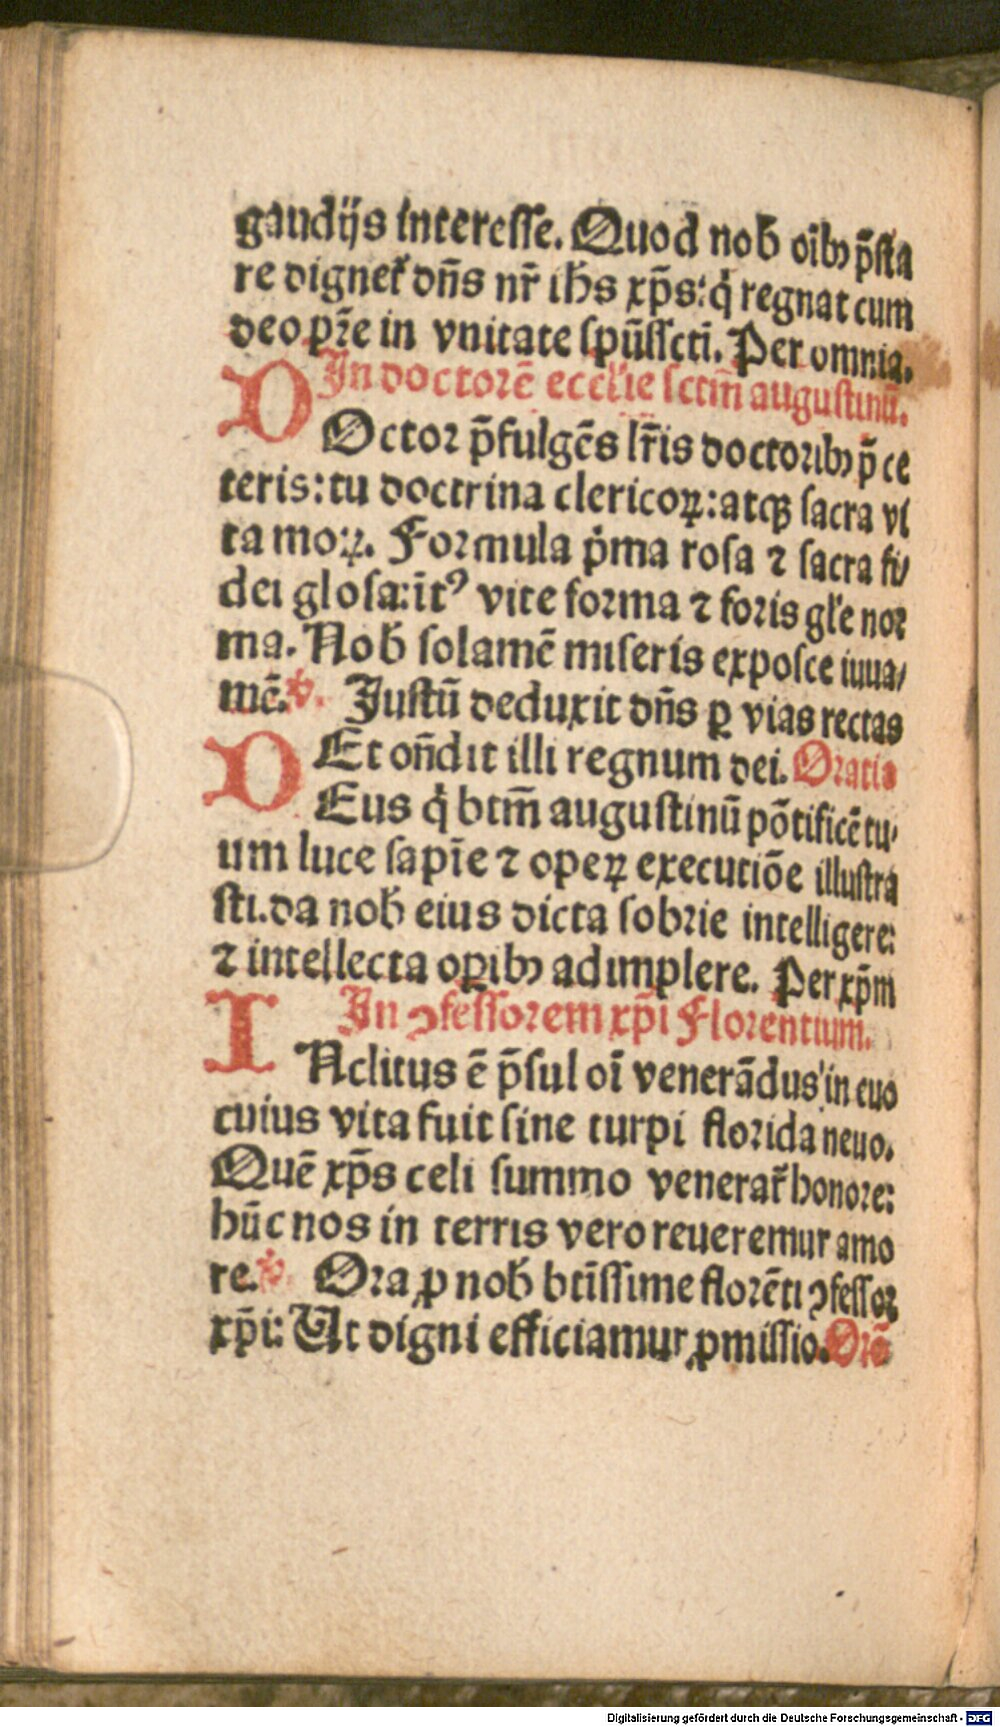 gaudijs interesse. Quod nob̄ oībꝰ p̄sta
re dignet᷑ dn̄s nr̄ ihs xp̄s: q̇ regnat cum
deo pr̄e in vnitate spūssctī. Per omnia.
In doctorē eccl̄ie sctm̄ augustinū.
DOctor p̄fulgēs lr̄is doctoribꝰ p̄ ce
teris: tu doctrina clericoꝝ: atqꝫ sacra vi
ta moꝝ. Formula p̓ma rosa ⁊ sacra fi/
dei glosa: īt᷒ vite forma ⁊ foris gl̄e nor
ma. Nob̄ solamē miseris exposce iuua/
mē. ℣. Justū deduxit dn̄s ꝑ vias rectas
Et on̄dit illi regnum dei. Oratio
DEus q̇ btm̄ augustinū pōtificē tu/
um luce sapīe ⁊ opeꝝ executiōe illustra
sti. da nob̄ eius dicta sobrie intelligere:
⁊ intellecta oꝑibꝰ adimplere. Per xp̄m
In ꝯfessorem xp̄i Florentium.
INclitus ē p̄sul oī venerādus in euo
cuius vita fuit sine turpi florida neuo.
Quē xp̄s celi summo venerat᷑ honore:
hūc nos in terris vero reueremur amo
re. ℣. Ora ꝓ nob̄ btīssime florēti ꝯfessor
xp̄i: Ut digni efficiamur ꝓmissio. Orō
Digitalisierung gefördert durch die Deutsche Forschungsgemeinschaft - DFG